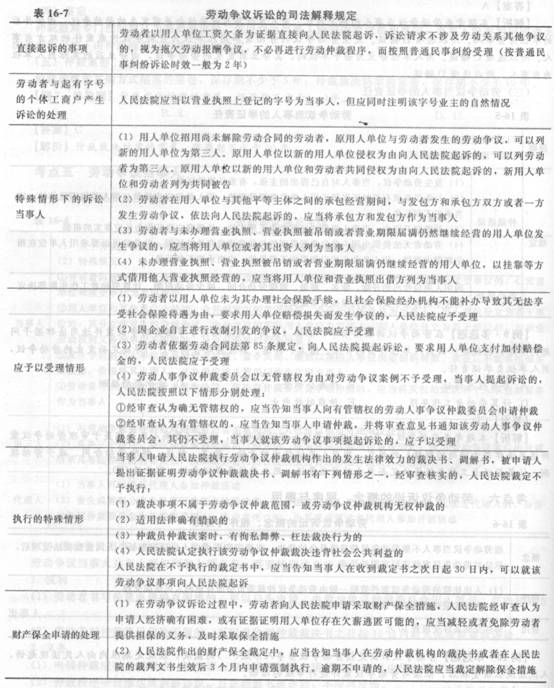 表 16-7
劳动争议诉讼的司法解释规定
直接起诉的事项
劳动者以用人单位工资欠条为证据直接向人民法院起诉，诉讼请求不涉及劳动关系其他争议
的，视为拖欠劳动报酬争议，不必再进行劳动仲裁程序，而按照普通民事纠纷受理（按普通民
事纠纷诉讼时效一般为 2 年）
劳动者与起有字号
的个体工商户产生
诉讼的处理
人民法院应当以营业执照上登记的字号为当事人，但应同时注明该字号业主的自然情况
特殊情形下的诉讼
当事人
（1）用人单位招用尚未解除劳动合同的劳动者，原用人单位与劳动者发生的劳动争议，可以列
新的用人单位为第三人。原用人单位以新的用人单位侵权为由向人民法院起诉的，可以列劳动
者为第三人。原用人单位以新的用人单位和劳动者共同侵权为由向人民法院起诉的，新用人单
位和劳动者列为共同被告
（2）劳动者在用人单位与其他平等主体之间的承包经营期间，与发包方和承包方双方或者一方
发生劳动争议，依法向人民法院起诉的，应当将承包方和发包方作为当事人
（3）劳动者与未办理营业执照、营业执照被吊销或者营业期限届满仍然继续经营的用人单位发
生争议的，应当将用人单位或者其出资人列为当事人
（4）未办理营业执照、营业执照被吊销或者营业期限届满仍继续经营的用人单位，以挂靠等方
式借用他人营业执照经营的，应当将用人单位和营业执照出借方列为当事人
应予以受理情形
（1）劳动者以用人单位未为其办理社会保险手续，且社会保险经办机构不能补办导致其无法享
受社会保险待遇为由，要求用人单位赔偿损失而发生争议的，人民法院应予受理
（2）因企业自主进行改制引发的争议，人民法院应予受理
（3）劳动者依据劳动合同法第 85 条规定，向人民法院提起诉讼，要求用人单位支付加付赔偿
金的，人民法院应予受理
（4）劳动人事争议仲裁委员会以无管辖权为由对劳动争议案件不予受理，当事人提起诉讼的，
人民法院按照以下情形分别处理：
①经审查认为确无管辖权的，应当告知当事人向有管辖权的劳动人事争议仲裁委员会申请仲裁
②经审查认为有管辖权的，应当告知当事人申请仲裁，并将审查意见书通知该劳动人事争议仲
裁委员会，其仍不受理，当事人就该劳动争议事项提起诉讼的，应予以受理
执行的特殊情形
当事人申请人民法院执行劳动争议仲裁机构作出的发生法律效力的裁决书、调解书，被申请人
提出证据证明劳动争议仲裁裁决书、调解书有下列情形之一，经审查核实的，人民法院裁定不
予执行：
（1）裁决事项不属于劳动争议仲裁范围，或劳动争议仲裁机构无权仲裁的
（2）适用法律确有错误的
（3）仲裁员仲裁该案时，有徇私舞弊、枉法裁决行为的
（4）人民法院认定执行该劳动争议仲裁裁决违背社会公共利益的
人民法院在不予执行的裁定书中，应当告知当事人在收到裁定书之次日起 30 日内，可以就该
劳动争议事项向人民法院起诉
财产保全申请的处理
（1）在劳动争议诉讼过程中，劳动者向人民法院申请采取财产保全措施，人民法院经审查认为
申请人经济确有困难，或有证据证明用人单位存在欠薪逃匿可能的，应当减轻或者免除劳动者
提供担保的义务，及时采取保全措施
（2）人民法院作出的财产保全裁定中，应当告知当事人在劳动仲裁机构的裁决书或者在人民法
院的裁判文书生效后 3 个月内申请强制执行。逾期不申请的，人民法院应当裁定解除保全措施